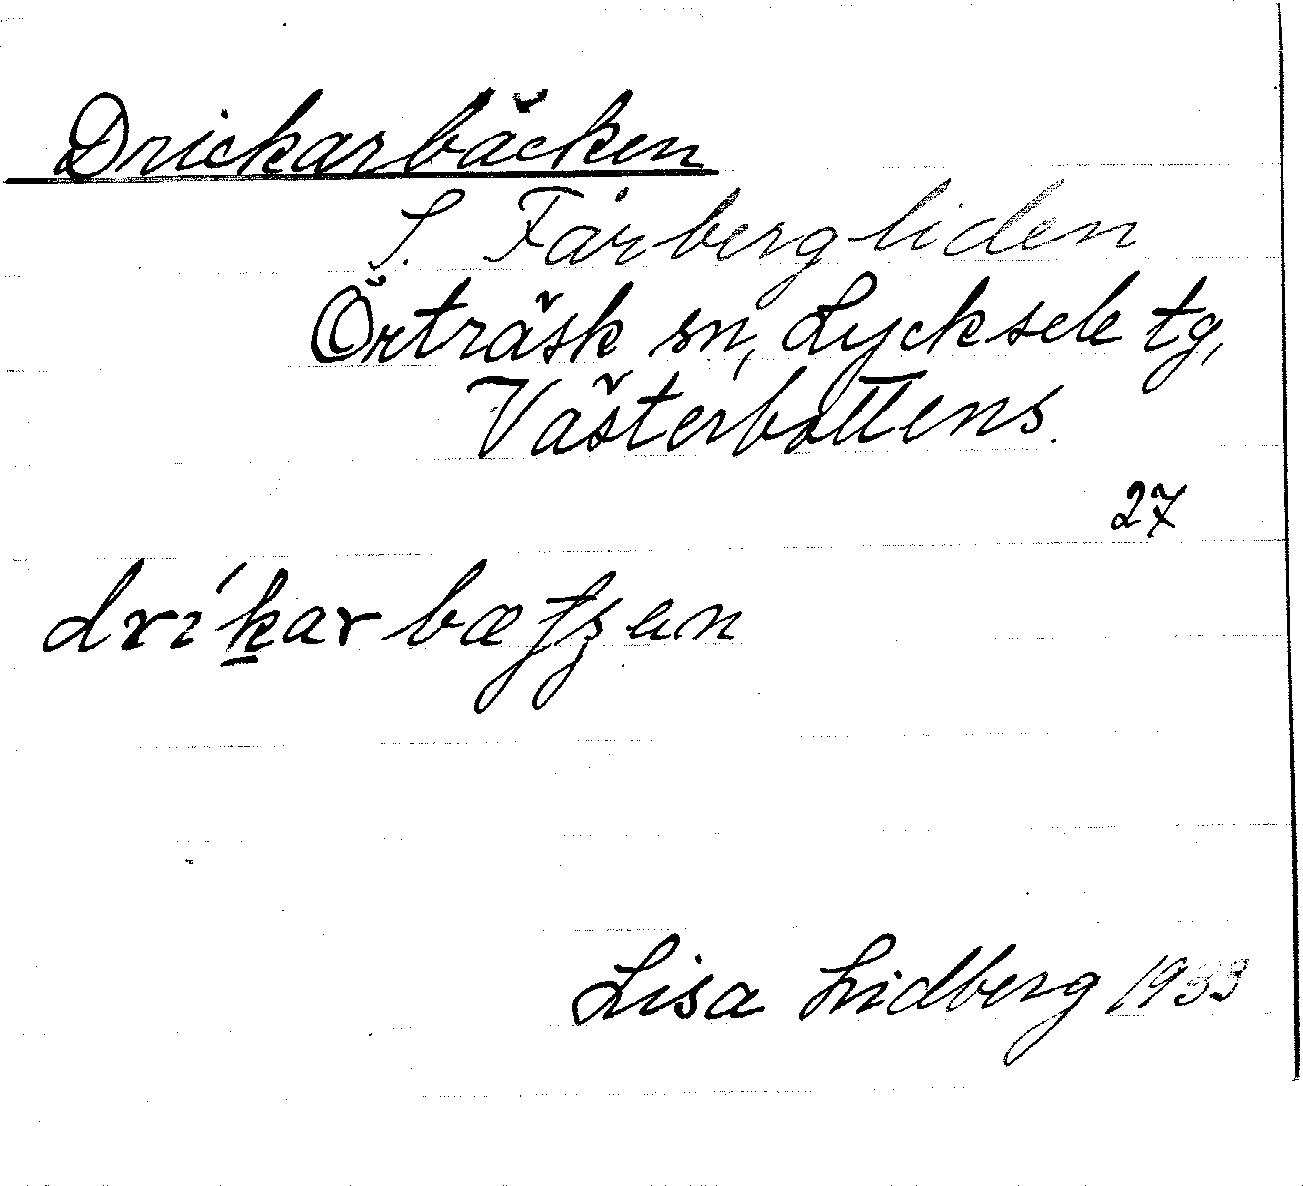 Drickarbäcken
S. Fårbergliden
Örträsk sn, Lycksele tg,
Västerbottens.
27
Lisa Lidberg 1933